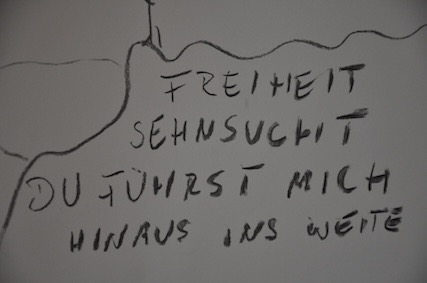 FREIHEIT
SEHNSUCHT
DU FÜHRST MICH
HINAUS INS WEITE